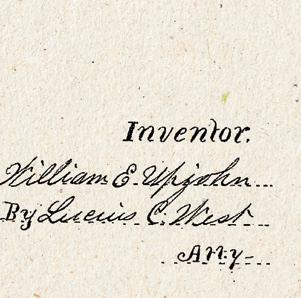 Inventor.
William E. Upjohn
By Lucius C. West
Att'y